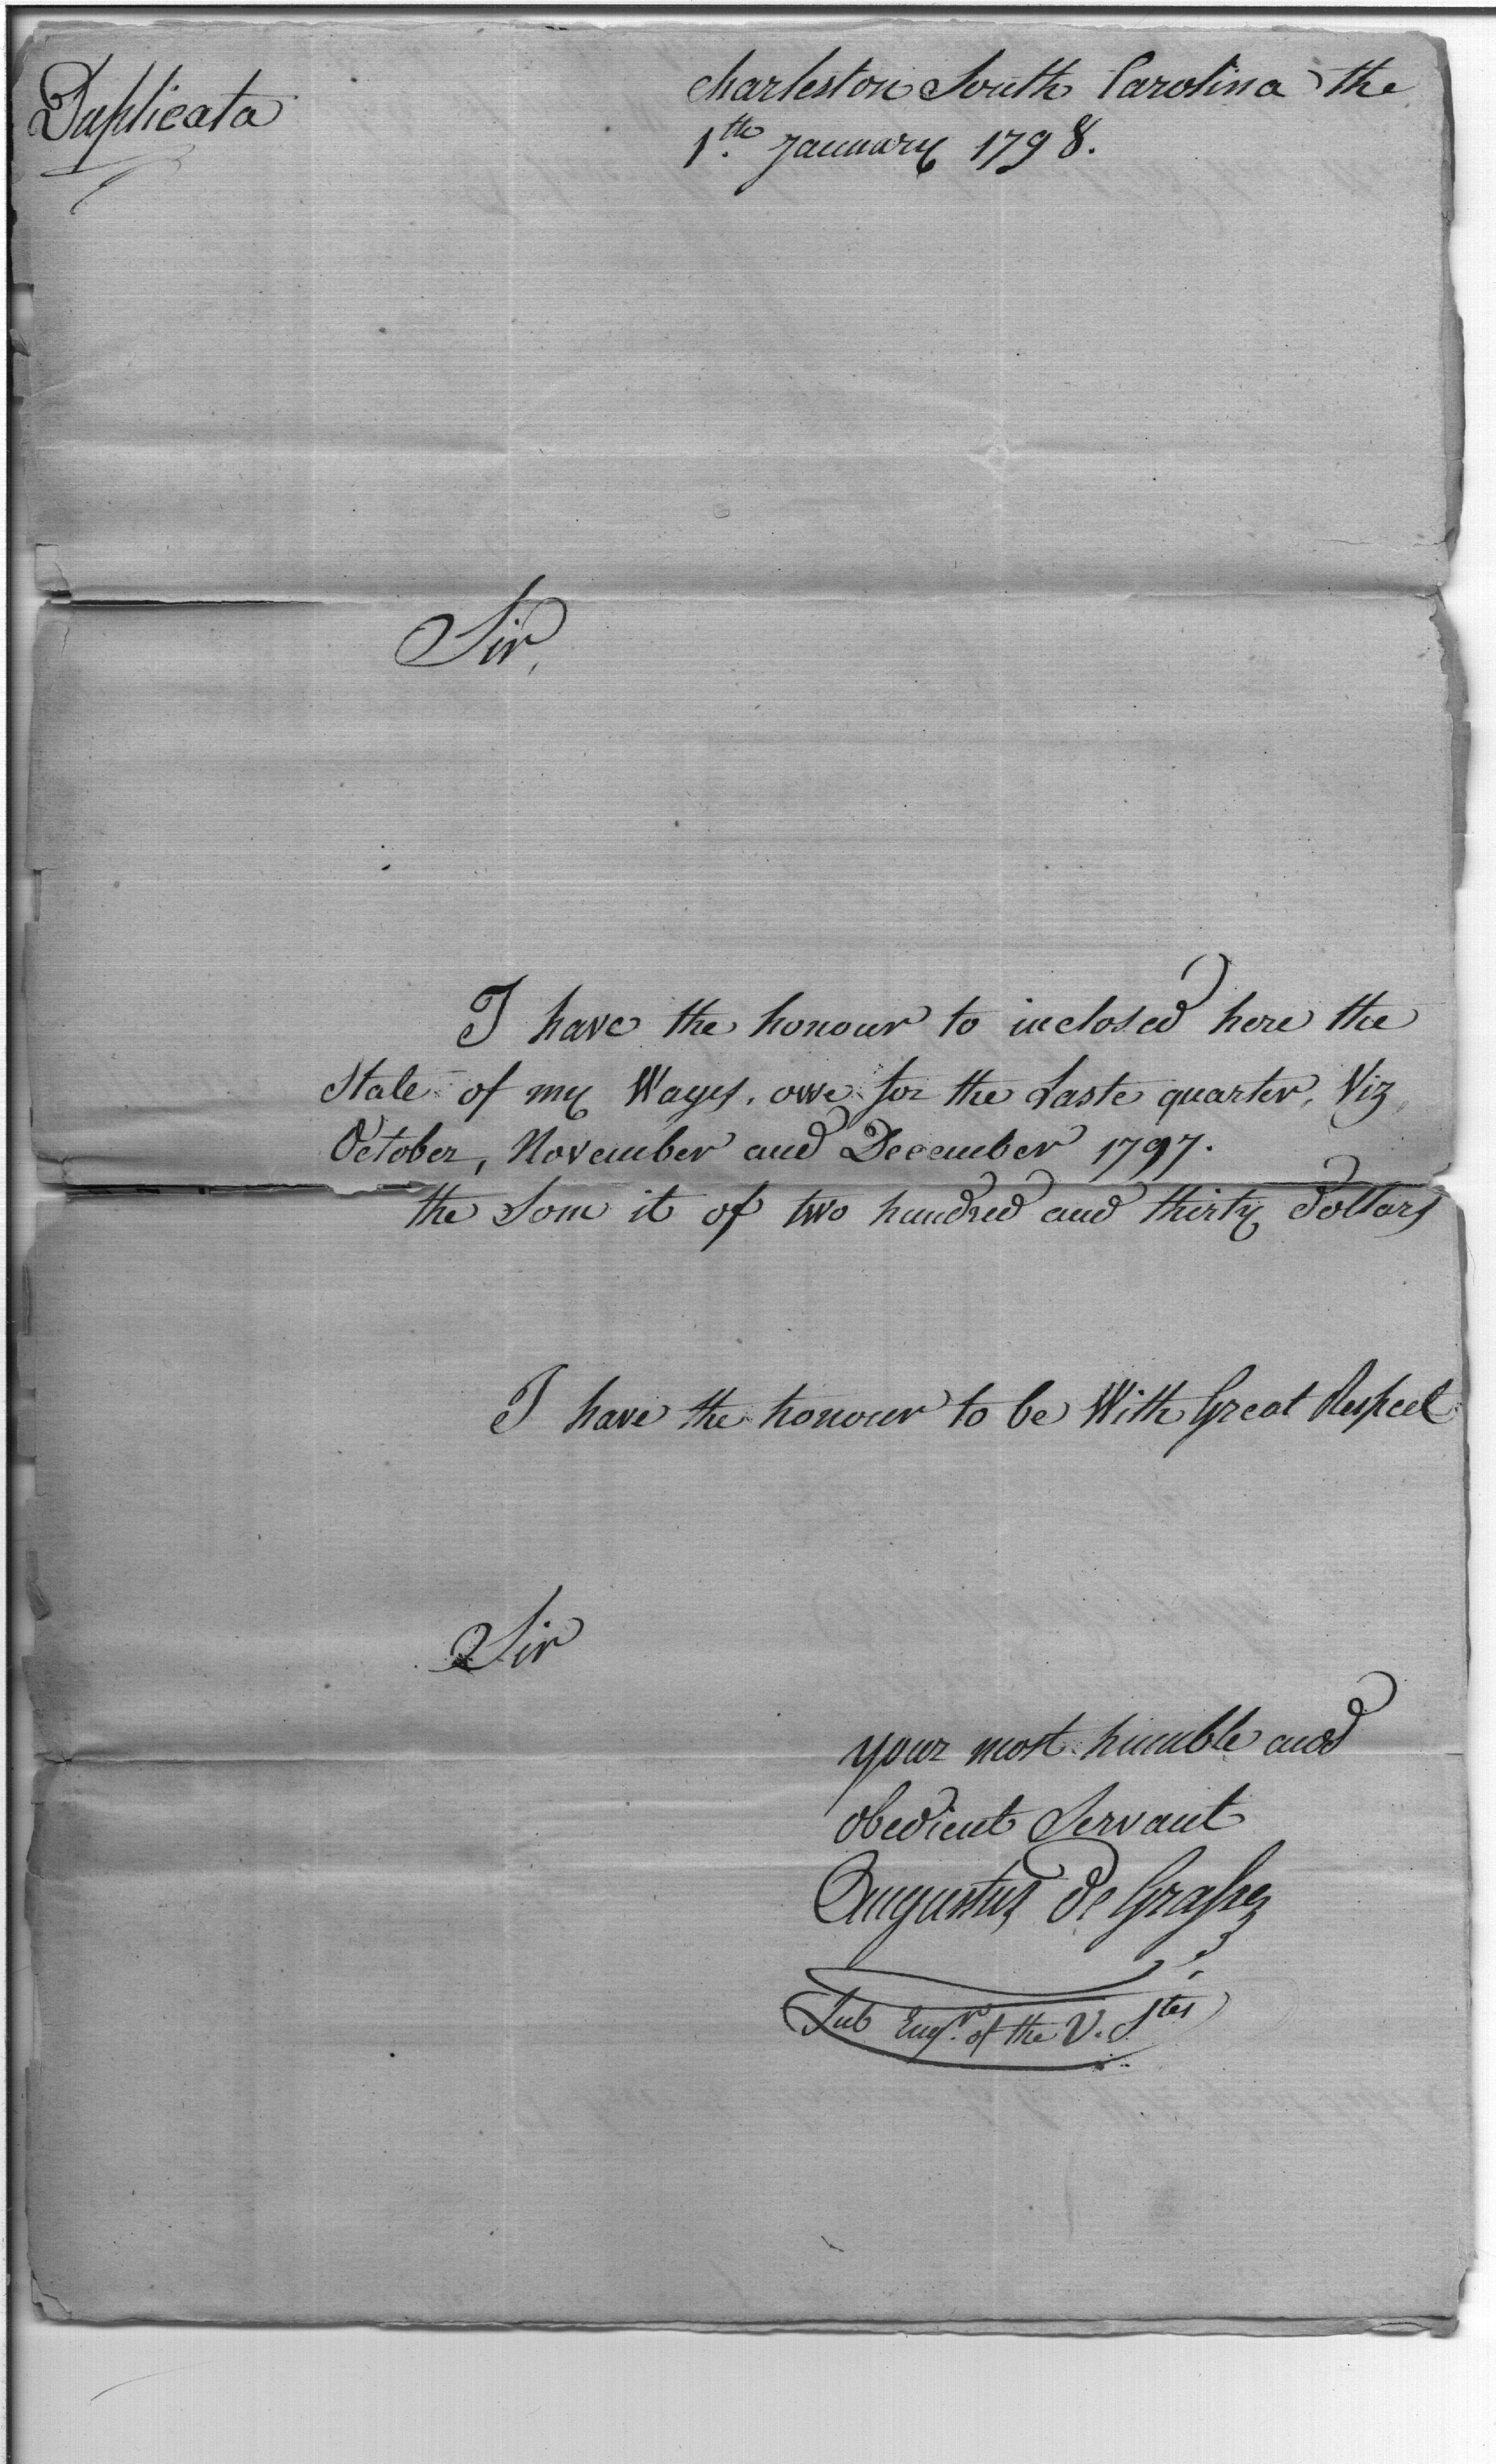 Duplicata
charleston South Carolina the
1.th January 1798.
Sir,
I have the honour to inclosed here the
State of my Wages, owe for the Laste quarter, Viz
October, November and December 1797.
the Som it of two hundred and thirty Dollars
I have the honour to be With Great Respect
Sir
your most humble and
obedient Servant
Augustus De Grasse
Sub Engr. of the U. Stes